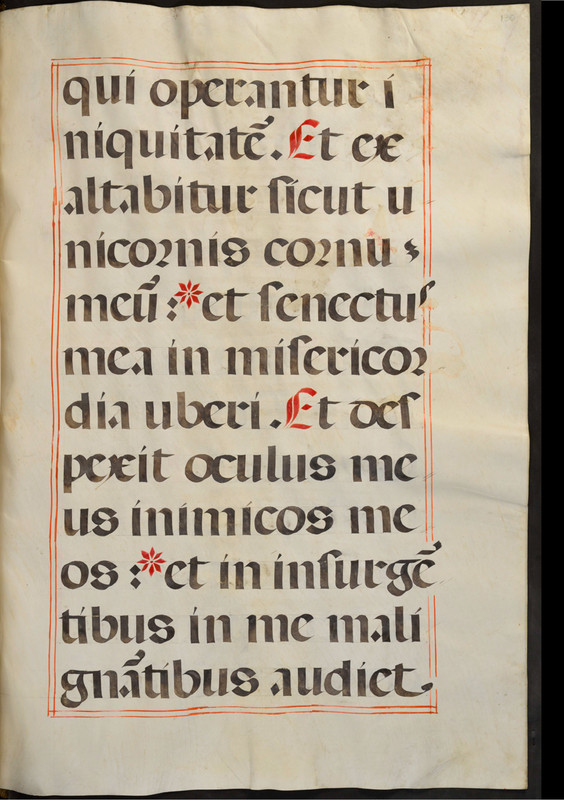 qui operantur i
niquitatē. Et ex
altabitur ſicut u
nicoꝛnis coꝛnu
meū : et ſenectuſ
mea in miſericoꝛ
dia uberi. Et deſ
pexit oculus me
us inimicos me
os : et in inſurgē
tibus in me mali
gnātibus audiet